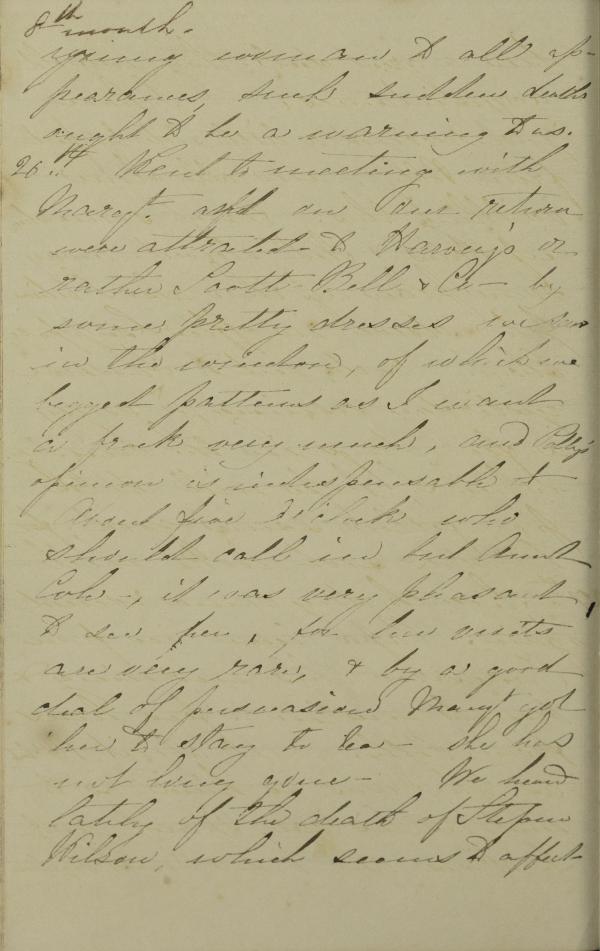 8th month.
young woman to all ap-
pearances, such sudden deaths
ought to be a warning to us.
26.th Went to meeting with
Margt. and on our return
were attracted to Harvey's or
rather Scott Bell & Co - by
some pretty dresses we saw
in the window, of which we
begged patterns as I want
a frock very much, and Polly's
opinion is indispensable +
About five o'clock who
should call in but Aunt
Cole -, it was very pleasant
to see her, for her visits
are very rare, & by a good
deal of persuasion Margt got
her to stay to tea - she has
not long gone - We heard
lately of the death of Stephen
Wilson, which seems to affect